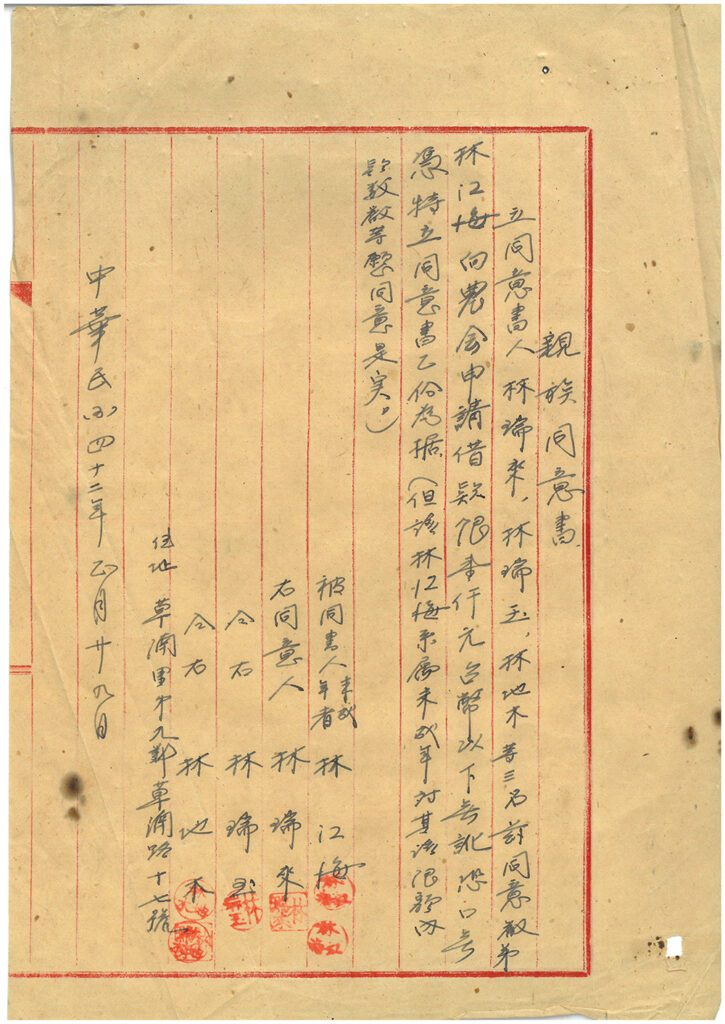 親族同意書
立同意書人林瑞來，林瑞玉，林地木等三名茲同意敝弟
林江海向農會申請借款限壹仟元台幣以下無訛恐口無
憑特立同意書乙份為据（但該林江海系屬未成年對其該限額內
敝等愿同意是实。）
被同意書人未成年者 林江海
右同意人 林瑞來
仝右 林瑞玉
仝右 林地木
住址 草湳里第九鄰草湳路十七號
中華民国四十二年正月廿九日